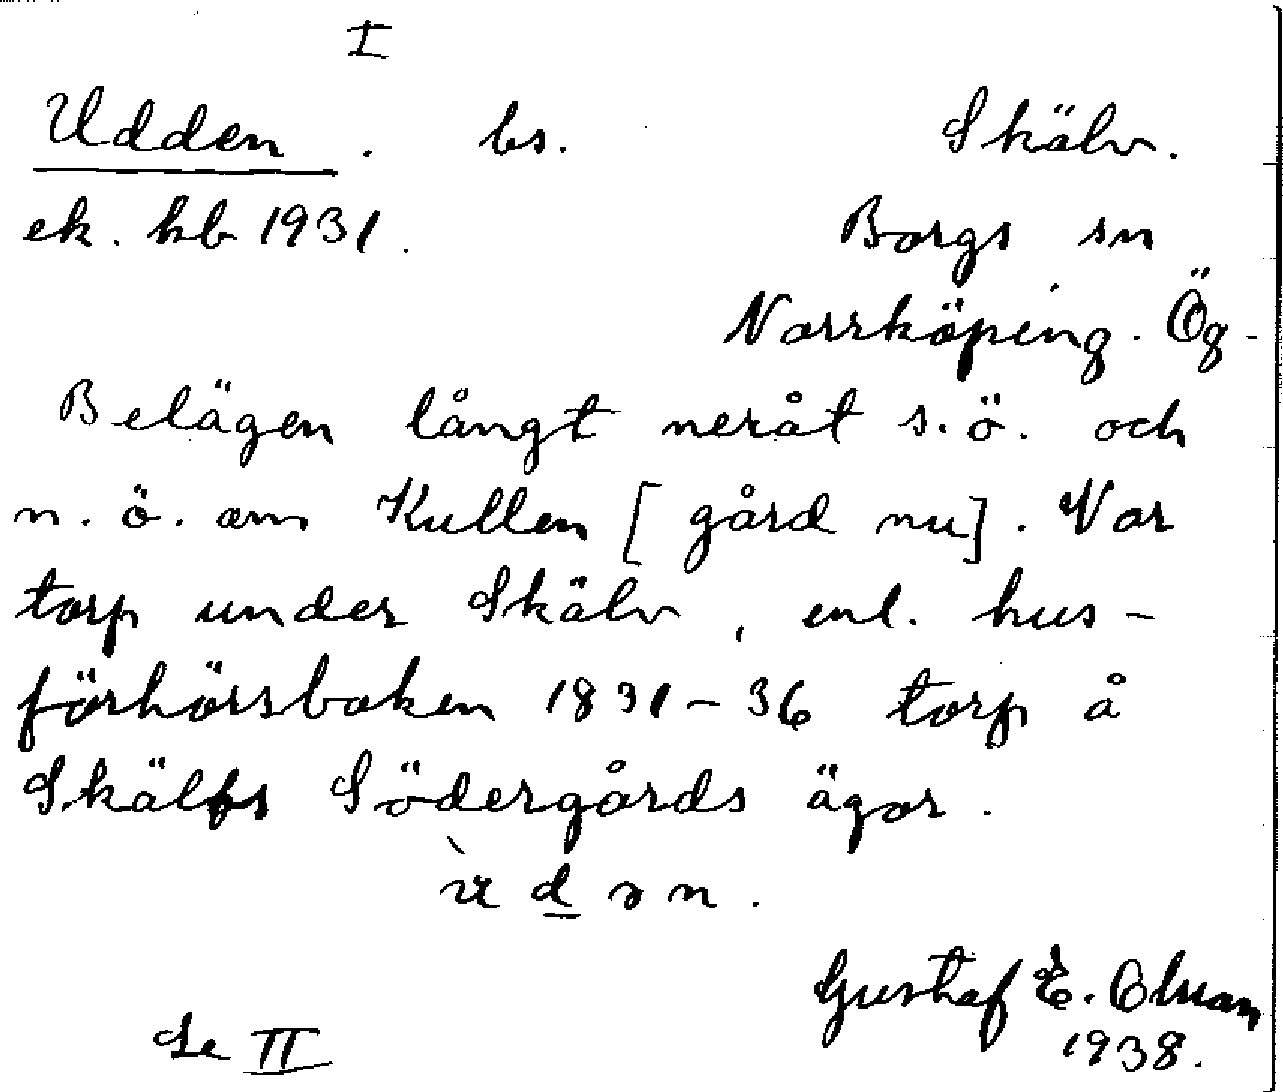 I
Udden. bs. Skälv.
ek. kb 1931. Borgs sn
Norrköping. Ög.
Belägen långt neråt s.ö. och
n.ö. om Kullen [gård nu]. Var
torp under Skälv, enl. hus-
förhörsboken 1831-36 torp å
Skälfs Södergårds ägor.
d ə n.
Gustaf E. Olman
Se II 1938.